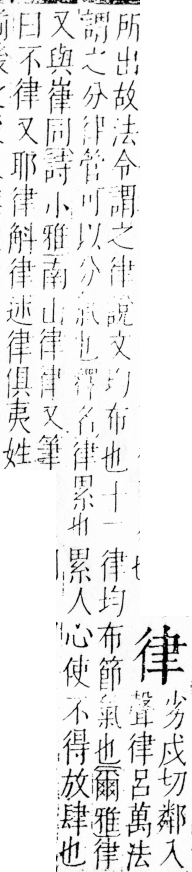 律
劣戌切鄰入
聲律呂萬法
所出故法令謂之律說文均布也十一
律均布節氣也爾雅律
謂之分律管可以分氣也釋名律累也
累人心使不得放肆也
又與嵂同詩小雅南山律律又筆
曰不律又耶律斛律述律俱夷姓